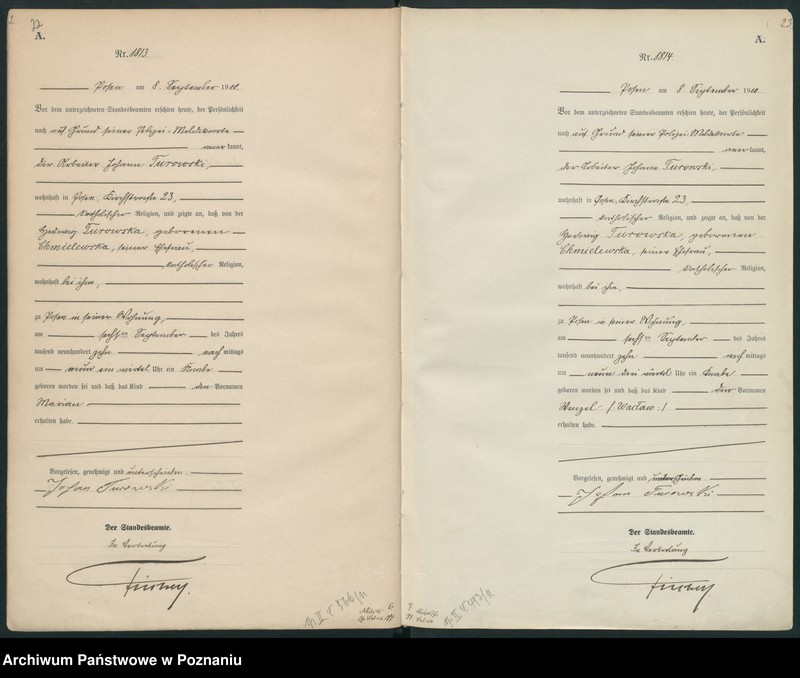 22
A.
Nr. 1813.
Posen am 8. September 1910.
Vor dem unterzeichneten Standesbeamten erschien heute, der Persönlichkeit
nach auf Grund seiner Polizei-Meldekarte
anerkannt,
der Arbeiter Johann Turowski,
wohnhaft in Posen, Kirchstraße 23,
katholischer Religion, und zeigte an, daß von der
Hedwig Turowska, geborenen
Chmielewska, seiner Ehefrau,
katholischer Religion,
wohnhaft bei ihm,
zu Posen in seiner Wohnung,
am sechsten September des Jahres
tausend neunhundert zehn nach mittags
um neun ein viertel Uhr ein Knabe
geboren worden sei und daß das Kind den Vornamen
Marian
erhalten habe.
Vorgelesen, genehmigt und unterschrieben
Johan Turowski
Der Standesbeamte.
In Vertretung
23
A.
Nr. 1814.
Posen am 8. September 1910.
Vor dem unterzeichneten Standesbeamten erschien heute, der Persönlichkeit
nach auf Grund seiner Polizei-Meldekarte
anerkannt,
der Arbeiter Johann Turowski,
wohnhaft in Posen, Kirchstraße 23,
katholischer Religion, und zeigte an, daß von der
Hedwig Turowska, geborenen
Chmielewska, seiner Ehefrau,
katholischer Religion,
wohnhaft bei ihm,
zu Posen in seiner Wohnung,
am sechsten September des Jahres
tausend neunhundert zehn nach mittags
um neun drei viertel Uhr ein Knabe
geboren worden sei und daß das Kind den Vornamen
Wenzel (:Wacław:)
erhalten habe.
Vorgelesen, genehmigt und unterschrieben
Johan Turowski
Der Standesbeamte.
In Vertretung
Archiwum Państwowe w Poznaniu